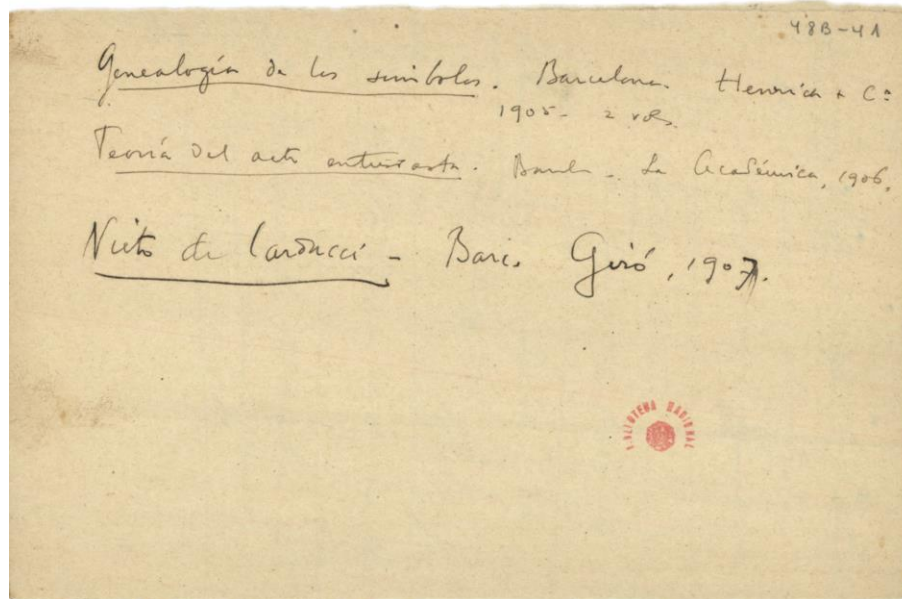 48B-41
Genealogía de los símbolos. Barcelona. Henrich & Cª
1905 - 2 vols.
Teoría del acto entusiasta. Barcel - La Académica, 1906.
Nieto de Carducci - Barc. Giró, 1907.
BIBLIOTECA NACIONAL